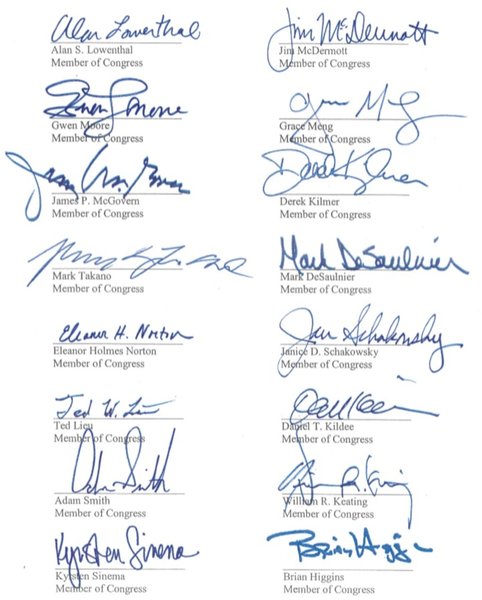 Alan Lowenthal
Alan S. Lowenthal
Member of Congress
Jim McDermott
Jim McDermott
Member of Congress
Gwen Moore
Gwen Moore
Member of Congress
Grace Meng
Grace Meng
Member of Congress
James P. McGovern
Member of Congress
Derek Kilmer
Derek Kilmer
Member of Congress
Mark Takano
Mark Takano
Member of Congress
Mark DeSaulnier
Mark DeSaulnier
Member of Congress
Eleanor H. Norton
Eleanor Holmes Norton
Member of Congress
Jan Schakowsky
Janice D. Schakowsky
Member of Congress
Ted W. Lieu
Ted Lieu
Member of Congress
Daniel T. Kildee
Member of Congress
Adam Smith
Adam Smith
Member of Congress
William R. Keating
William R. Keating
Member of Congress
Kyrsten Sinema
Kyrsten Sinema
Member of Congress
Brian Higgins
Brian Higgins
Member of Congress